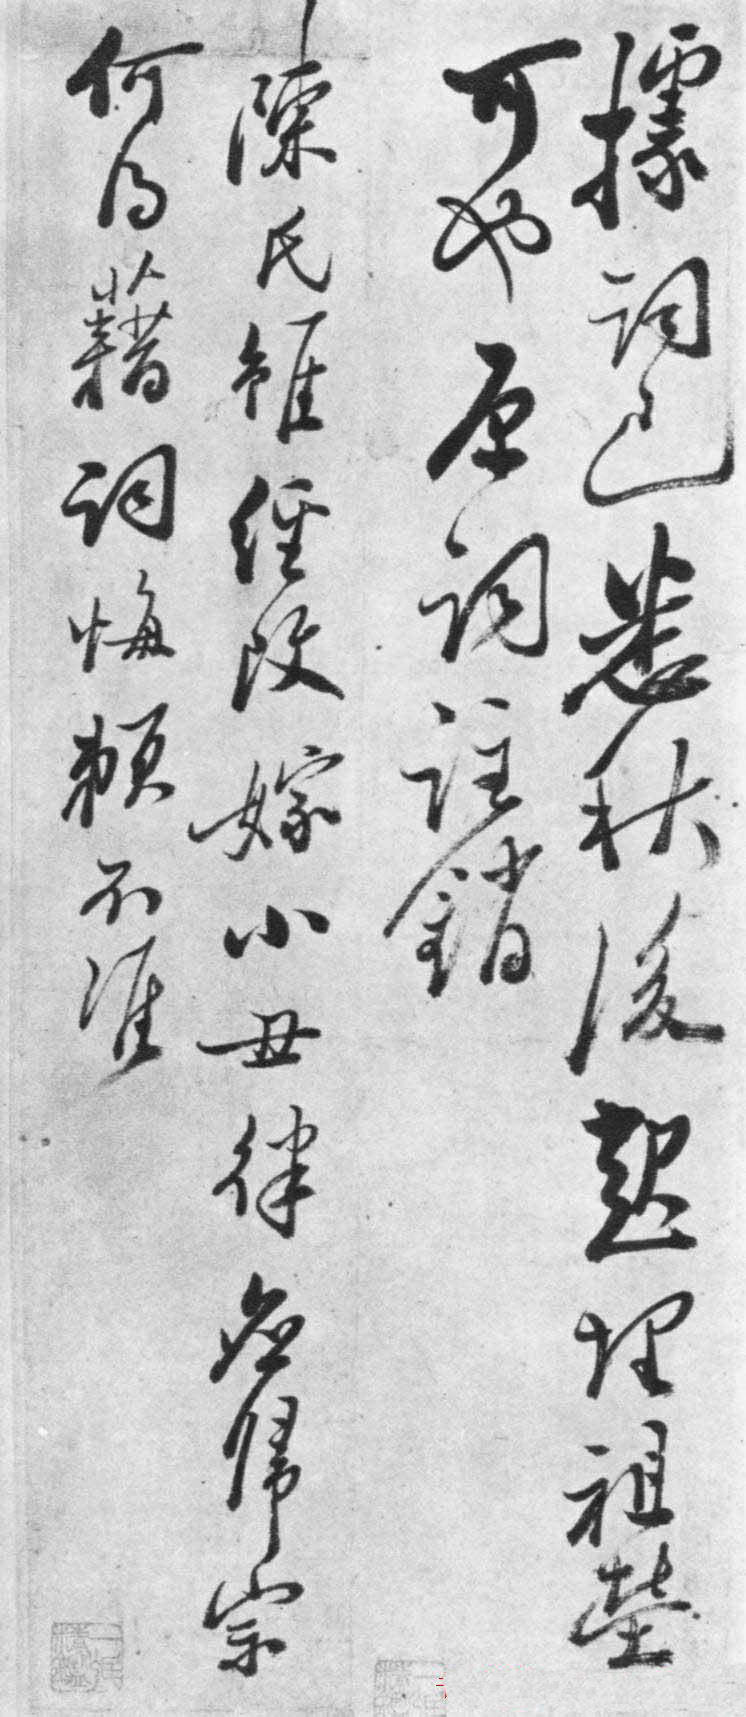 據詞已悉秋後起埋祖塋
可也原詞註銷
陳氏雖經改嫁小丑律無歸宗
何得藉詞悔賴不准